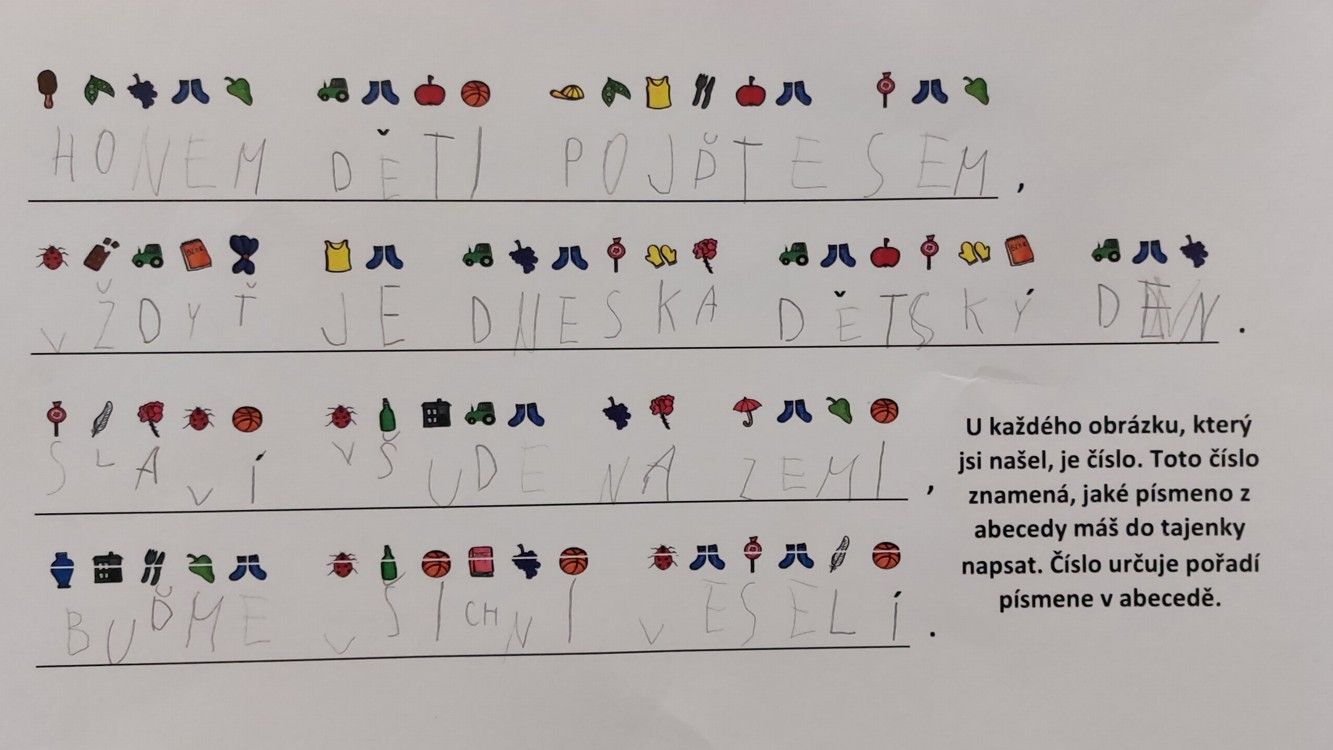 HONEM DĚTI POJĎTE SEM,
VŽDYŤ JE DNESKA DĚTSKÝ DEN.
SLAVÍ VŠUDE NA ZEMI,
BUĎME VŠICHNI VESELÍ.
U každého obrázku, který
jsi našel, je číslo. Toto číslo
znamená, jaké písmeno z
abecedy máš do tajenky
napsat. Číslo určuje pořadí
písmene v abecedě.